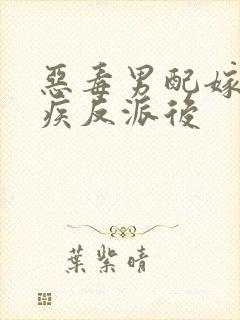 惡毒男配嫁
疾反派後
葉紫晴